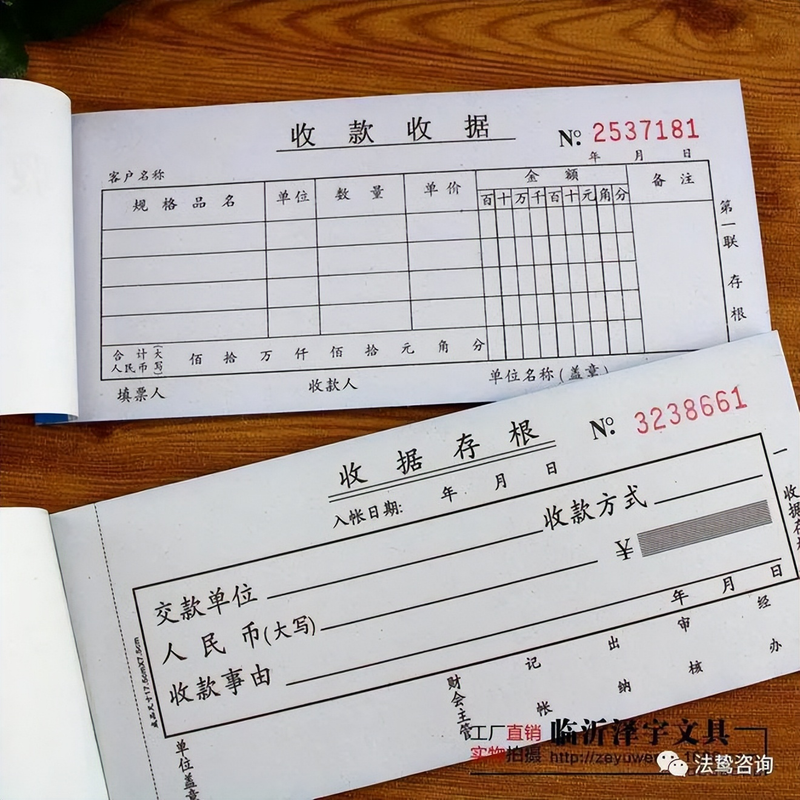 收款收据
№ 2537181
年 月 日
客户名称
规格品名 单位 数量 单价 金额 备注
百十万千百十元角分
合计 人民币 (大写) 佰 拾 万 仟 佰 拾 元 角 分
填票人 收款人 单位名称(盖章)
第一联 存根
收据存根
№ 3238661
入帐日期: 年 月 日
交款单位 收款方式
人民币(大写) ¥
收款事由
年 月 日
单位盖章 财会主管 记帐 出纳 审核 经办
一 收据存
工厂直销
实物拍摄
临沂泽宇文具
http://zeyuwe
法鸷咨询